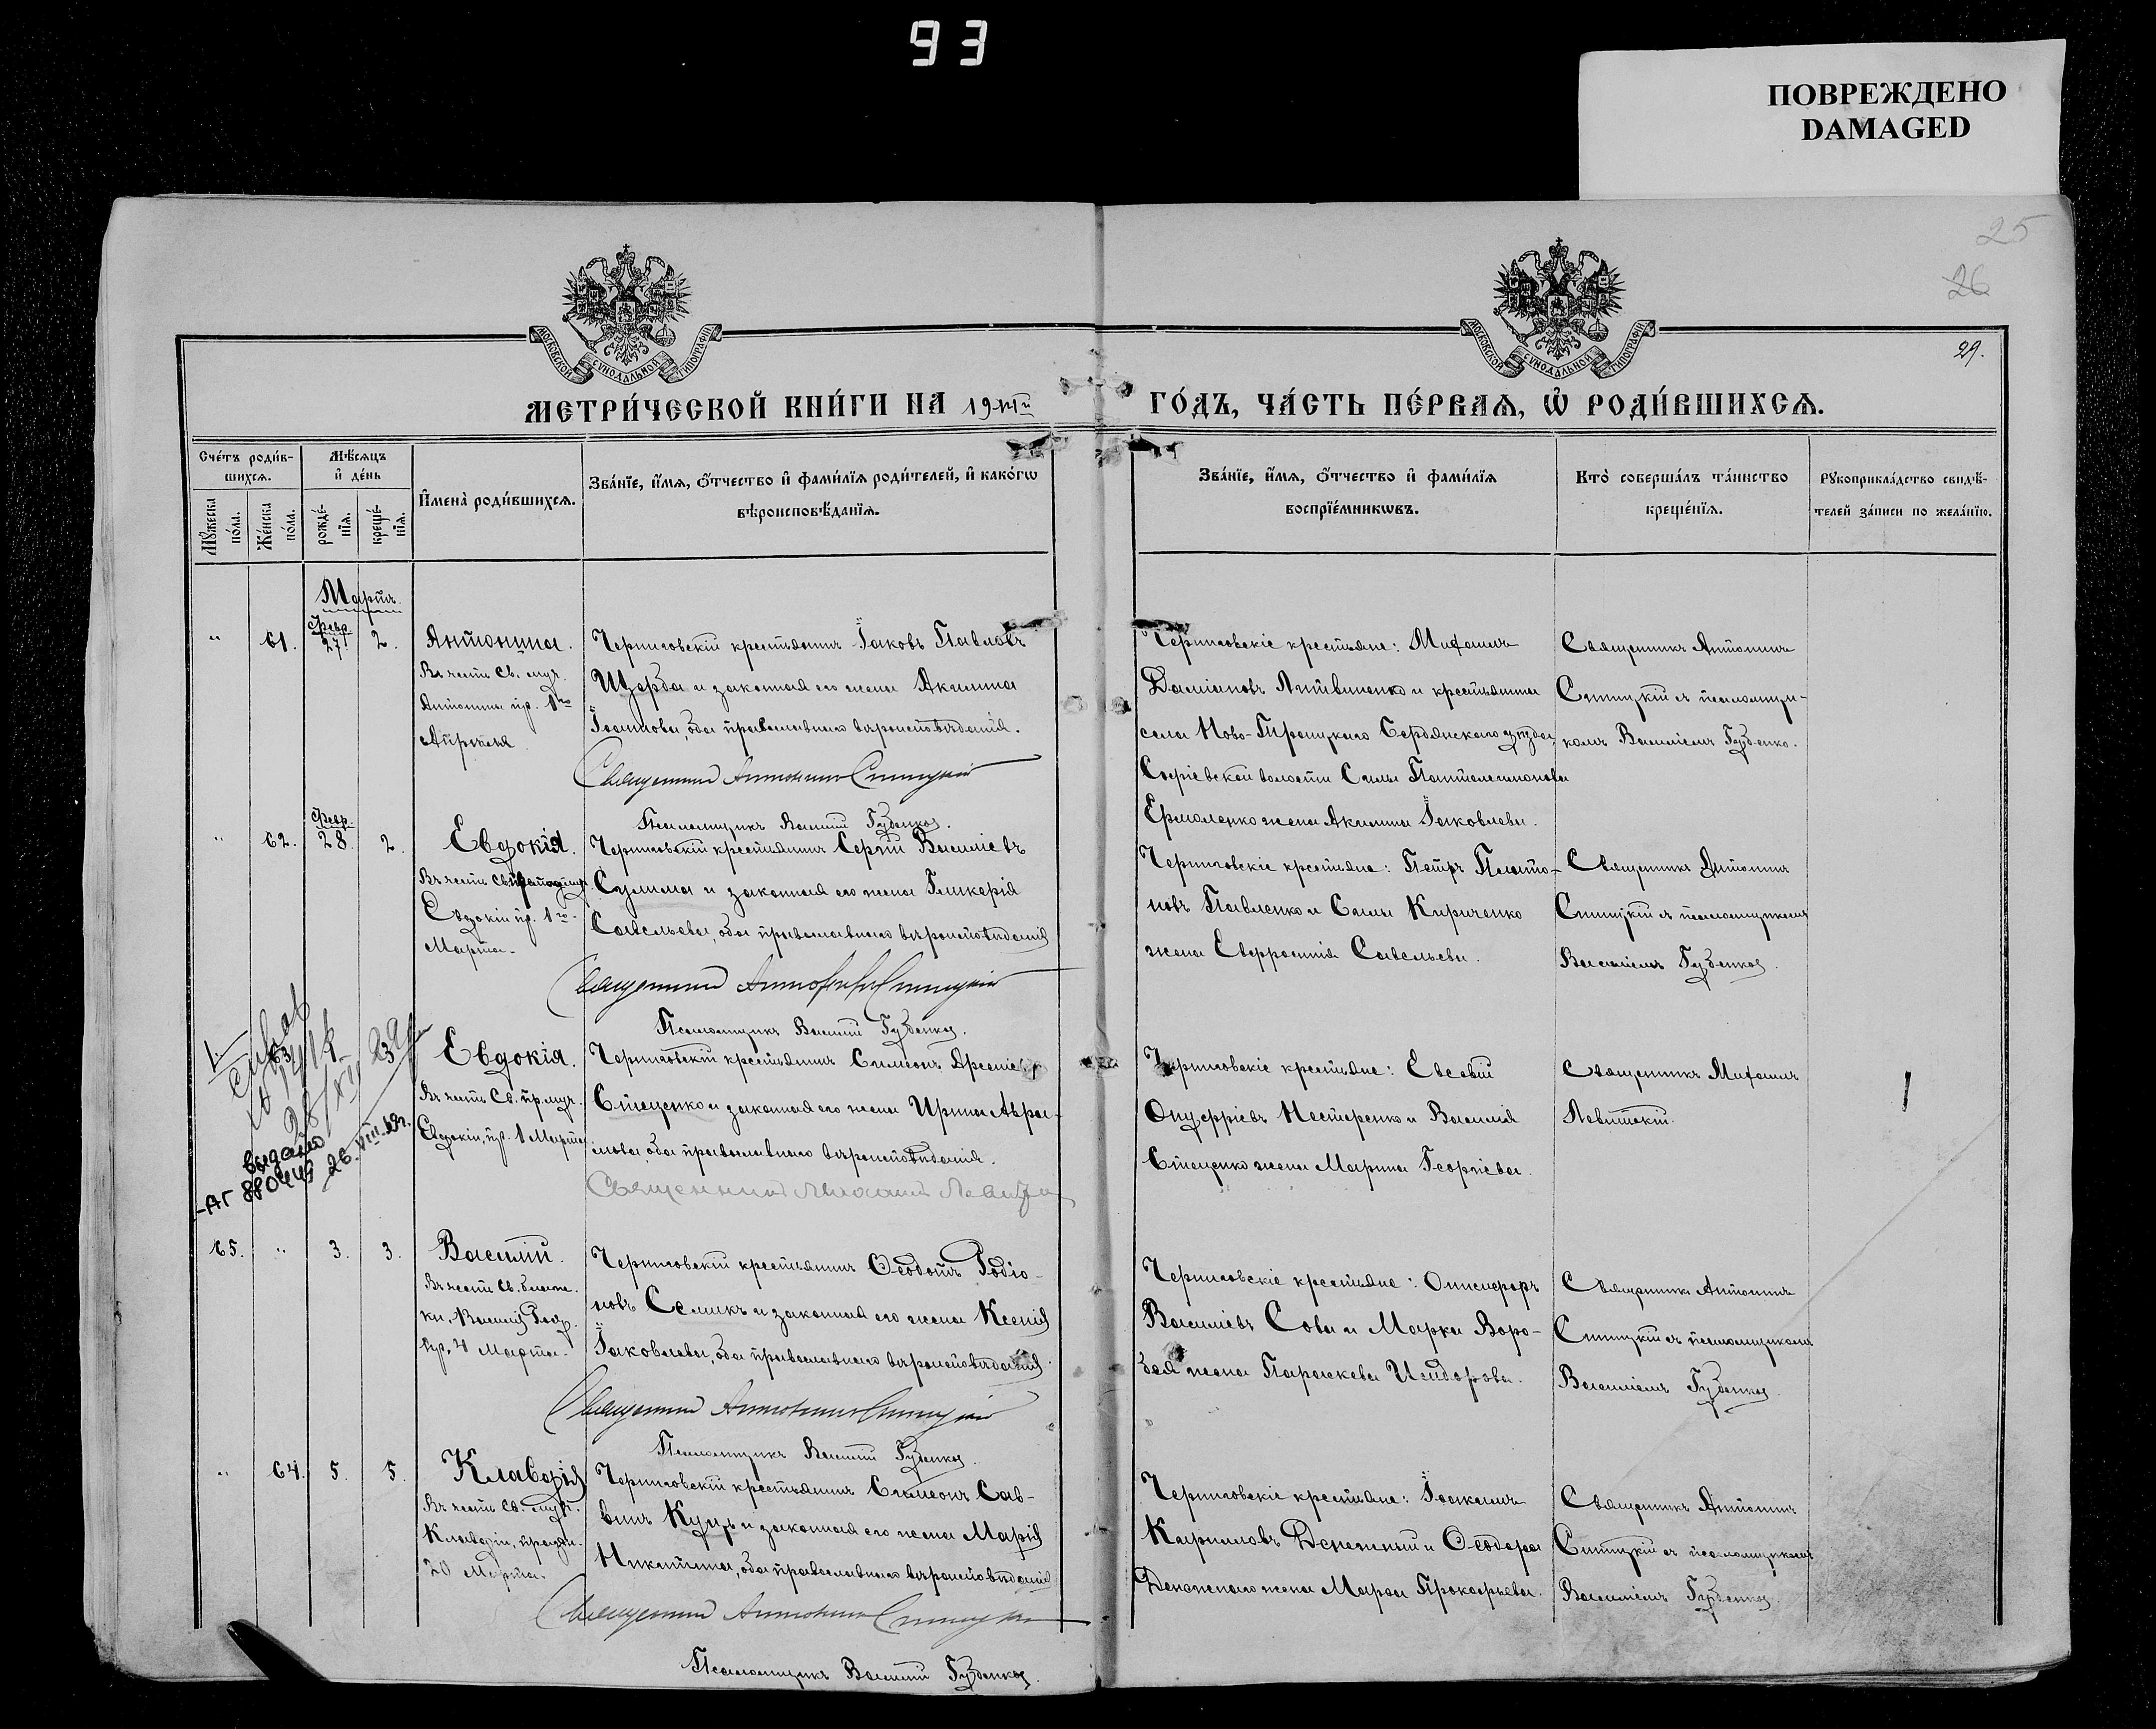 93
ПОВРЕЖДЕНО
DAMAGED
25
26
29.
МОСКОВСКОЙ СѴНОДАЛЬНОЙ ТИПОГРАФІИ
МОСКОВСКОЙ СѴНОДАЛЬНОЙ ТИПОГРАФІИ
МЕТРИ́ЧЕСКОЙ КНИ́ГИ НА 19
ГО́ДЪ, ЧА́СТЬ ПЕ́РВАѦ, Ѡ҆ РОДИ́ВШИХСѦ.
Сче́тъ роди́в-
шихсѧ.
Мѣ́сѧцъ
и҆ де́нь
Мꙋ́жеска по́ла.
Же́нска по́ла.
рожде́-
нїѧ.
креще́-
нїѧ.
И҆мена̀ роди́вшихсѧ.
Зва́нїе, и҆́мѧ, ѻ҆́тчество и҆ фами́лїѧ роди́телей, и҆ како́гѡ
вѣроисповѣ́данїѧ.
Зва́нїе, и҆́мѧ, ѻ҆́тчество и҆ фами́лїѧ
воспрїе́мникѡвъ.
Кто̀ соверша́лъ та́инство
креще́нїѧ.
Рꙋкоприкла́дство свидѣ́-
телей за́писи по жела́нїю.
Марта
" 61. Февр. 27 2. Антонина.
Въ честь Св. муч.
Антонины пр. 1го
Апрѣля
Черниговскій крестьянинъ Іаковъ Павловъ
Щерба и законная его жена Акилина
Іоаннова, оба православнаго вѣроисповѣданія.
Священникъ Антонинъ Спицкій
Псаломщикъ Василій Губенко.
Черниговскіе крестьяне: Михаилъ
Даміановъ Литвиненко и крестьянина
села Ново-Троицкаго Бердянскаго уѣзда,
Софіевской волости Саввы Пантелеимонова
Ермоленко жена Акилина Іаковлева.
Священникъ Антонинъ
Спицкій съ псаломщи-
комъ Василіемъ Губенко.
" 62. Февр. 28. 2. Евдокія.
Евдокіи пр. 1го
Марта.
Черниговскій крестьянинъ Сергій Василіевъ
Сулима и законная его жена Гликерія
Савельева, оба православнаго вѣроисповѣданія
Священникъ Антонинъ Спицкій
Псаломщикъ Василій Губенко.
Черниговскіе крестьяне: Петръ Плато-
новъ Павленко и Саввы Кириченко
жена Евфросинія Савельева.
Священникъ Антонинъ
Спицкій съ псаломщикомъ
Василіемъ Губенко.
выдано
26.VIII.49г.
Евдокія.
Въ честь Св. пр.муч.
Евдокіи, пр. 1 Марта
Черниговскій крестьянинъ Симеонъ Арсеніевъ
Стеценко и законная его жена Ирина Авра-
мова оба православнаго вѣроисповѣданія.
Священникъ Михаилъ Левитскій
Черниговскіе крестьяне: Евсевій
Онуфріевъ Нестеренко и Василія
Стеценко жена Марина Георгіева.
Священникъ Михаилъ
Левитскій.
65. " 3. 3. Василій.
Въ честь Св. благов.
кн. Василія Рост.
пр. 4 Марта.
Черниговскій крестьянинъ Ѳеодотъ Родіо-
новъ Семикъ и законная его жена Ксенія
Іаковлева, оба православнаго вѣроисповѣданія
Священникъ Антонинъ Спицкій
Псаломщикъ Василій Губенко.
Черниговскіе крестьяне: Онисифоръ
Василіевъ Сова и Марка Воро-
бея жена Параскева Исидорова.
Священникъ Антонинъ
Спицкій съ псаломщикомъ
Василіемъ Губенко.
" 64. 5. 5. Клавдія
Въ честь св. муч.
Клавдіи, праздн.
20 Марта.
Черниговскій крестьянинъ Симеонъ Сав-
винъ Куць и законная его жена Марія
Никитина, оба православнаго вѣроисповѣданія
Священникъ Антонинъ Спицкій
Псаломщикъ Василій Губенко.
Черниговскіе крестьяне: Іоакимъ
Кирилловъ Денежный и Ѳеодора
Денежнаго жена Марѳа Прокофьева.
Священникъ Антонинъ
Спицкій съ псаломщикомъ
Василіемъ Губенко.